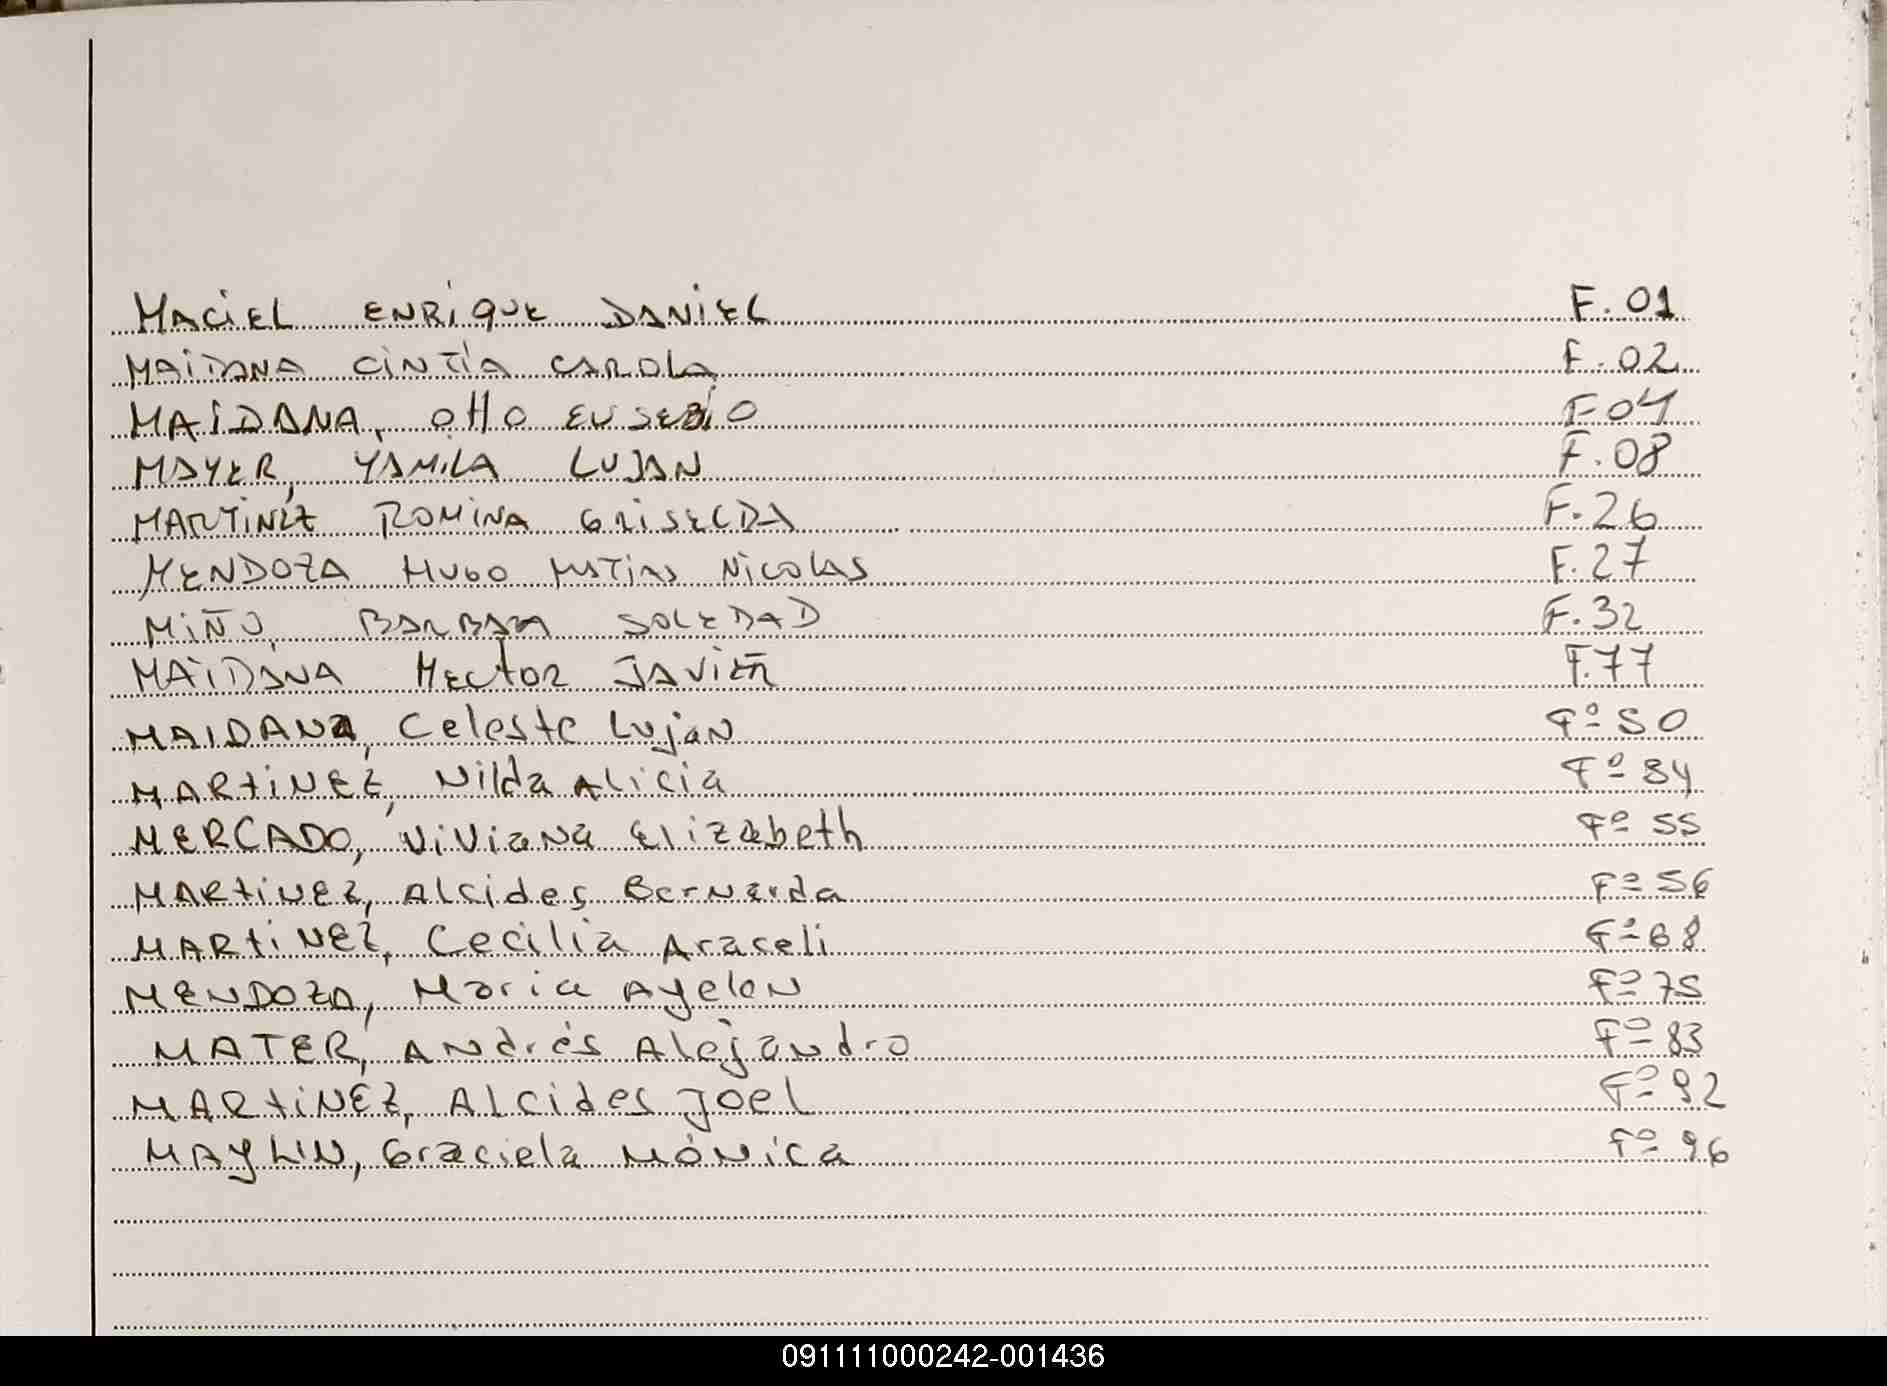 MACIEL ENRIQUE DANIEL F. 01
MAIDANA CINTIA CAROLA F. 02
MAIDANA, OTTO EUSEBIO F 04
MAYER, YAMILA LUJAN F. 08
MARTINEZ ROMINA GRISELDA F. 26
MENDOZA HUGO MATIAS NICOLAS F. 27
MIÑO, BARBARA SOLEDAD F. 32
MAIDANA HECTOR JAVIER F. 77
MAIDANA, Celeste Lujan Fº 50
MARTINEZ, Nilda Alicia Fº 84
MERCADO, Viviana Elizabeth Fº 55
MARTINEZ, Alcides Bernarda Fº 56
MARTINEZ, Cecilia Araceli Fº 68
MENDOZA, Maria Ayelen Fº 75
MATER, Andrés Alejandro Fº 83
MARTINEZ, Alcides Joel Fº 92
MAYLIN, Graciela Mónica Fº 96
091111000242-001436